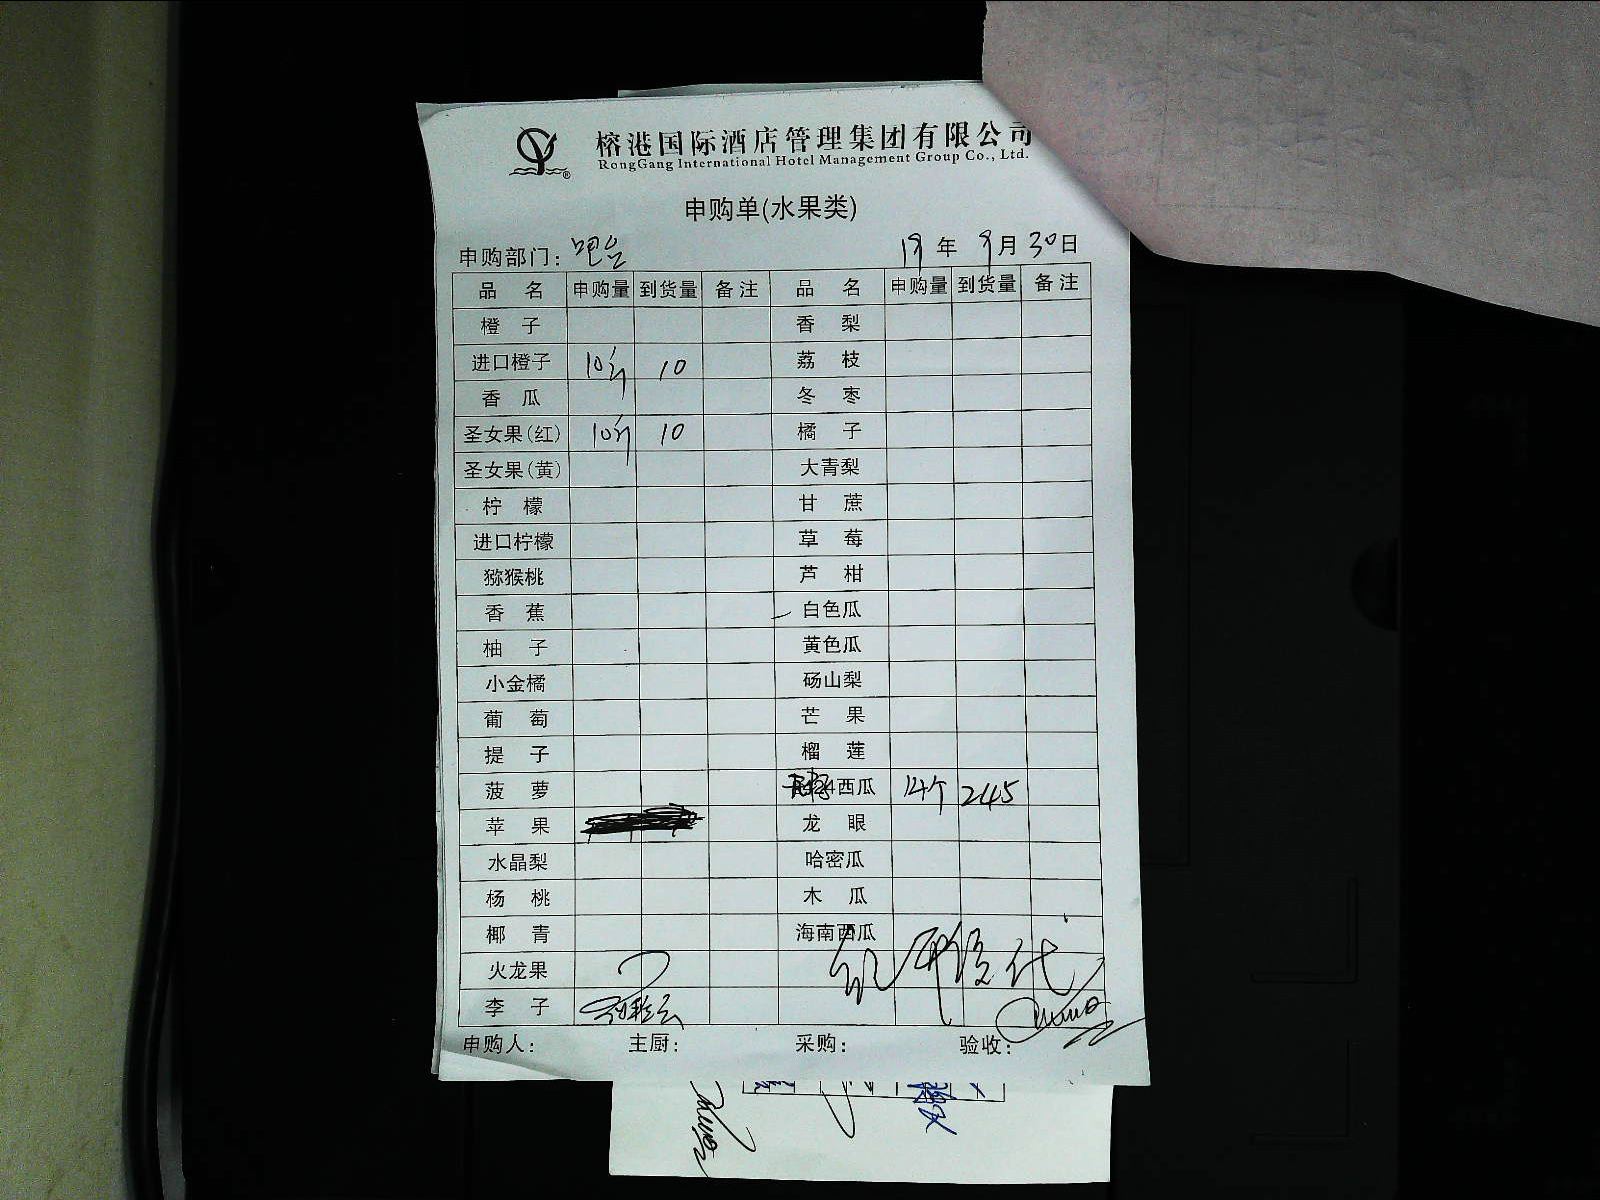 榕港国际酒店管理集团有限公司
RongGang International Hotel Management Group Co., Ltd.
申购单(水果类)
申购部门:
19年 9月 30日
品 名 申购量 到货量 备注 品 名 申购量 到货量 备注
橙 子 香 梨
进口橙子 10斤 10 荔 枝
香 瓜 冬 枣
圣女果(红) 10斤 10 橘 子
圣女果(黄) 大青梨
柠 檬 甘 蔗
进口柠檬 草 莓
猕猴桃 芦 柑
香 蕉 白色瓜
柚 子 黄色瓜
小金橘 砀山梨
葡 萄 芒 果
提 子 榴 莲
菠 萝 西瓜 12个 245
苹 果 龙 眼
水晶梨 哈密瓜
杨 桃 木 瓜
椰 青 海南西瓜
火龙果
李 子
申购人: 主厨: 采购: 验收: